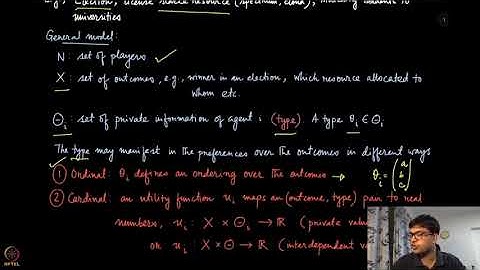 Election, license scarce resource (spectrum, cloud), matching students to
universities
General model:
N : set of players ✓
X : set of outcomes, e.g., winner in an election, which resource allocated to
whom etc.
Θi : set of private information of agent i (type). A type θi ∈ Θi
The type may manifest in the preferences over the outcomes in different ways
① Ordinal: θi defines an ordering over the outcomes → θi = (a b c)
② Cardinal: an utility function ui maps an (outcome, type) pair to real
numbers, ui : X × Θi → ℝ (private valu
or ui : X × Θ → ℝ (interdependent va
NPTEL
1